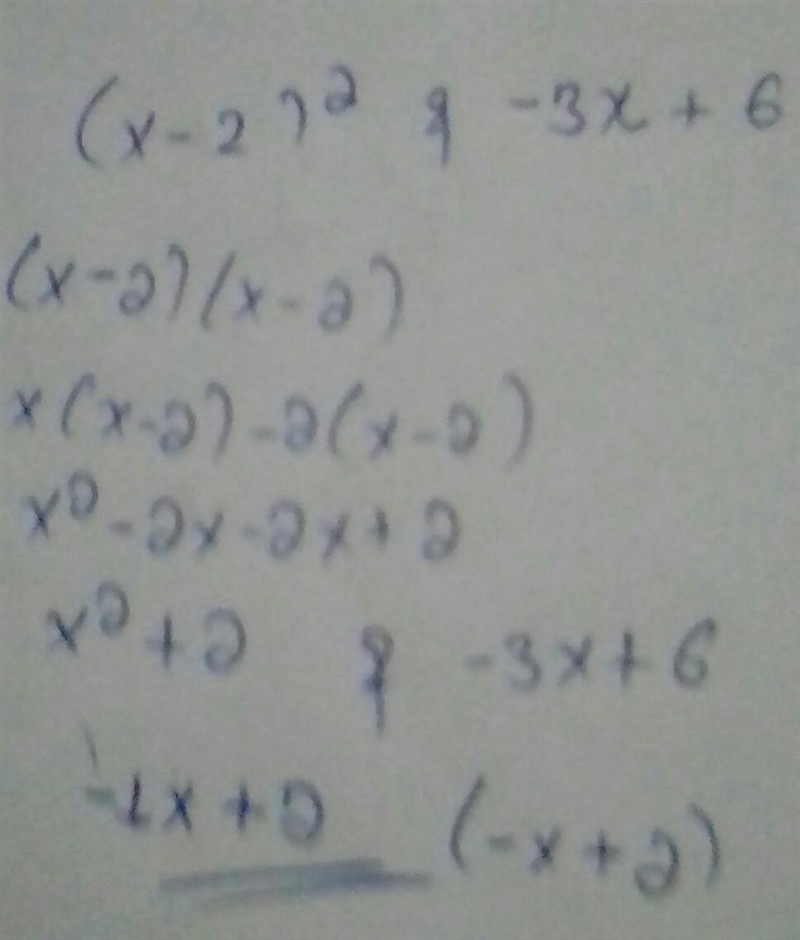 (x-2)² & -3x + 6
(x-2)(x-2)
x(x-2)-2(x-2)
x²-2x-2x+2
x²+2 & -3x+6
-1x+2 (-x+2)